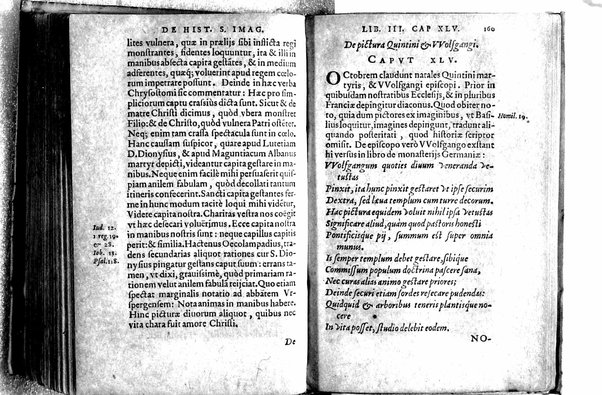 DE HIST. S. IMAG.
lites vulnera, quæ in præliis sibi inflicta regi
monstrantes, fidentes loquuntur, ita & illi in
manibus absecta capita gestãre, & in medium
adferentes, quæcq; voluerint apud regem cœlo-
rum impetrare possunt. Deinde in hæc verba
Chrysostomi sic commentatur: Hæc pro sim-
pliciorum captu crassius dicta sunt. Sicut & de
matre Christi dicimus, quòd vbera monstret
Filio: & de Christo, quòd vulnera Patri ostẽtet.
Neq; enim tam crassa spectacula sunt in cœlo.
Hanc causam suspicor, quare apud Lutetiam
D. Dionysius, & apud Maguntiacum Albanus
martyr depicti, videantur capita gestare in ma-
nibus. Neque enim facilè mihi persuaserit quis-
piam anilem fabulam, quòd decollati tantum
itineris confecerint. Sanctus capita gestans fer-
me in hunc modum tacitè loqui mihi videtur,
Videte capita nostra. Charitas vestra nos coëgit
vt hæc desecari voluerimus. Ecce capita nostra
in manibus nostris sunt: neque capillus capitis
Iud. 12.
1 reg. 19.
& 28.
Iob. 13.
Psal. 118.
perit: & similia. Hactenus Oecolampadius, tra-
dens secundarias aliquot rationes cur S. Dio-
nysius pingatur gestans caput suum: errans ta-
men, vt dixi, grauissimè, quòd primariam ra-
tionem velut anilem fabulã reijciat. Quo etiam
spectat marginalis notatio ad abbatem Vr-
spergensem: Nota animas in manibus habere.
Hinc picturæ diuorum aliquot, quibus nec
vita chara fuit amore Christi.
De
LIB. III. CAP XLV.
160
De pictura Quintini & VVolfgangi.
CAPVT XLV.
OCtobrem claudunt natales Quintini mar-
tyris, & VVolfgangi episcopi. Prior in
quibusdam nostratibus Ecclesijs, & in pluribus
Franciæ depingitur diaconus. Quod obiter no-
to, quia dum pictores ex imaginibus, vt Basi-
Homil. 19.
lius loquitur, imagines depingunt, tradunt ali-
quando posteritati, quod historiæ scriptor
omisit. De episcopo verò VVolfgango exstant
hi versus in libro de monasterijs Germaniæ:
VVolfgangum quoties diuum veneranda ve-
tustas
Pinxit, ita hunc pinxit gestaret vt ipse securim
Dextra, sed læua templum cum turre decorum.
Hac pictura equidem voluit nihil ipsa vetustas
Significare aliud, quàm quod pastoris honesti
Pontificisque pij, summum est super omnia
munus.
Is semper templum debet gestare, sibique
Commissum populum doctrina pascere sana,
Nec curas alias animo gestare priores;
Deinde securi etiam sordes resecare pudendas:
Quidquid & arboribus teneris plantisque no-
cere
In vita posset, studio delebit eodem.
NO-